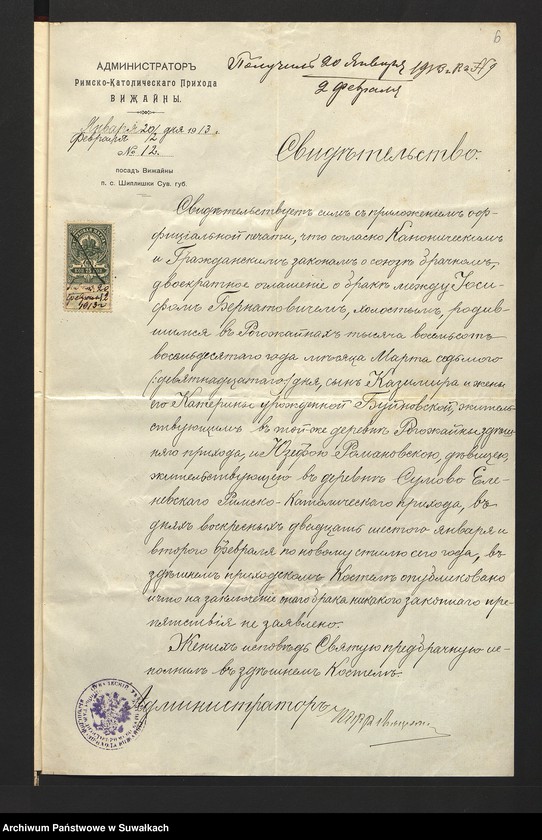 6
АДМИНИСТРАТОРЪ
Римско-Католическаго Прихода
ВИЖАЙНЫ.
Января 20/ дня 1913 г.
Февраля 2
№ 12.
посадъ Вижайны
п. с. Шиплишки Сув. губ.
Получилъ 20 Января 1913 г.
2 Февраля
Свидѣтельство.
Свидѣтельствуетъ симъ съ приложеніемъ оф-
фиціальной печати, что согласно Каноническимъ
и Гражданскимъ законамъ о союзѣ брачномъ,
двоекратное оглашеніе о бракѣ между Іоси-
фомъ Бернатовичемъ, холостымъ, родив-
шимся въ Рогожайнахъ тысяча восемьсотъ
восемьдесятаго года мѣсяца Марта седьмого
(:девятнадцатаго) дня, сынъ Казимира и жены
его Катерины урожденной Буйновской, житель-
ствующимъ въ той же деревнѣ Рогожайны здѣш-
няго прихода, и Юзефою Романовскою, дѣвицею,
жительствующею въ деревнѣ Сумово Еле-
невскаго Римско-Католическаго прихода, въ
дняхъ воскресныхъ двадцать шестого января и
второго февраля по новому стилю сего года, въ
здѣшнемъ приходскомъ Костелѣ опубликовано
и что на заключеніе сего брака никакого законнаго пре-
пятствія не заявлено.
Женихъ исповѣдь Святую предбрачную ис-
полнилъ въ здѣшнемъ Костелѣ.
Администраторъ
Archiwum Państwowe w Suwałkach